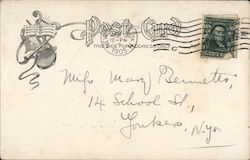 Post Card
THIS SIDE FOR ADDRESS
12-PM
1905
Miss Mary Bennetto,
14 School St.,
Yonkers,
N.Y.